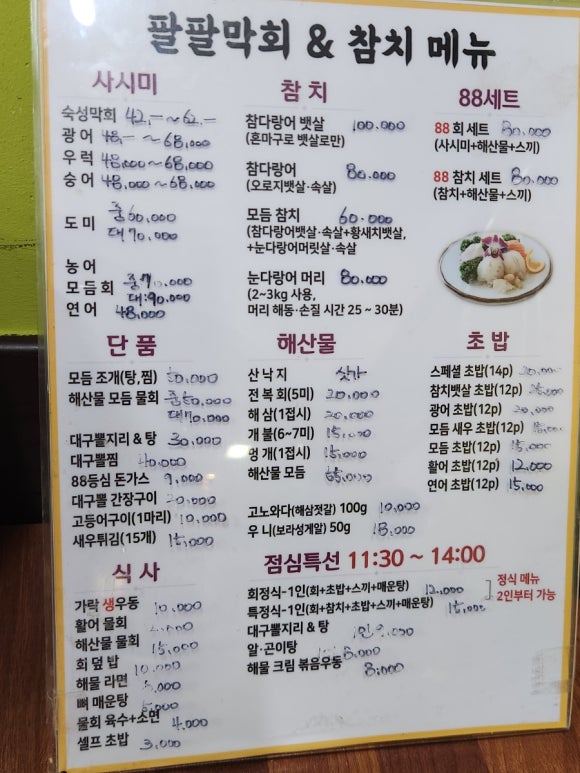 팔팔막회 & 참치 메뉴
사시미
숙성막회 42,- ~ 62,-
광어 48,- ~ 68,000
우럭 48,000 ~ 68,000
숭어 48,000 ~ 68,000
도미 중 60,000
대 70,000
농어
모듬회 중 70,000
대: 90,000
연어 48,000
참치
참다랑어 뱃살 100,000
(혼마구로 뱃살로만)
참다랑어 80,000
(오로지뱃살·속살)
모듬 참치 60,000
(참다랑어뱃살·속살+황새치뱃살,
+눈다랑어머릿살·속살
눈다랑어 머리 80,000
(2~3kg 사용,
머리 해동·손질 시간 25 ~ 30분)
88세트
88 회 세트 80,000
(사시미+해산물+스끼)
88 참치 세트 80,000
(참치+해산물+스끼)
단품
모듬 조개(탕,찜) 50,000
해산물 모듬 물회 중 50,000
대 70,000
대구뽈지리 & 탕 30,000
대구뽈찜 40,000
88등심 돈가스 9,000
대구뽈 간장구이 20,000
고등어구이(1마리) 10,000
새우튀김(15개) 15,000
해산물
산 낙지 싯가
전 복 회(5미) 20,000
해 삼(1접시) 20,000
개 불(6~7미) 15,000
멍 개(1접시) 15,000
해산물 모듬 65,000
고노와다(해삼젓갈) 100g 10,000
우 니(보라성게알) 50g 18,000
초밥
스페셜 초밥(14p) 20,000
참치뱃살 초밥(12p)
광어 초밥(12p) 20,000
모듬 새우 초밥(12p)
모듬 초밥(12p) 15,000
활어 초밥(12p) 12,000
연어 초밥(12p) 15,000
식사
가락 생우동 10,000
활어 물회
해산물 물회 15,000
회 덮 밥 10,000
해물 라면
뼈 매운탕
물회 육수+소면 4,000
셀프 초밥 3,000
점심특선 11:30 ~ 14:00
회정식-1인(회+초밥+스끼+매운탕) 12,000
특정식-1인(회+참치+초밥+스끼+매운탕) 15,000
정식 메뉴
2인부터 가능
대구뽈지리 & 탕 1인
알·곤이탕 8,000
해물 크림 볶음우동 8,000